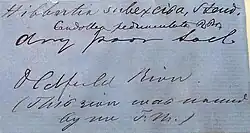 Hibbertia subexcisa, Steud.
Candollea pedunculata R.Br.
dry poor soil
Oldfield River.
(This river was named
by me F.M.)